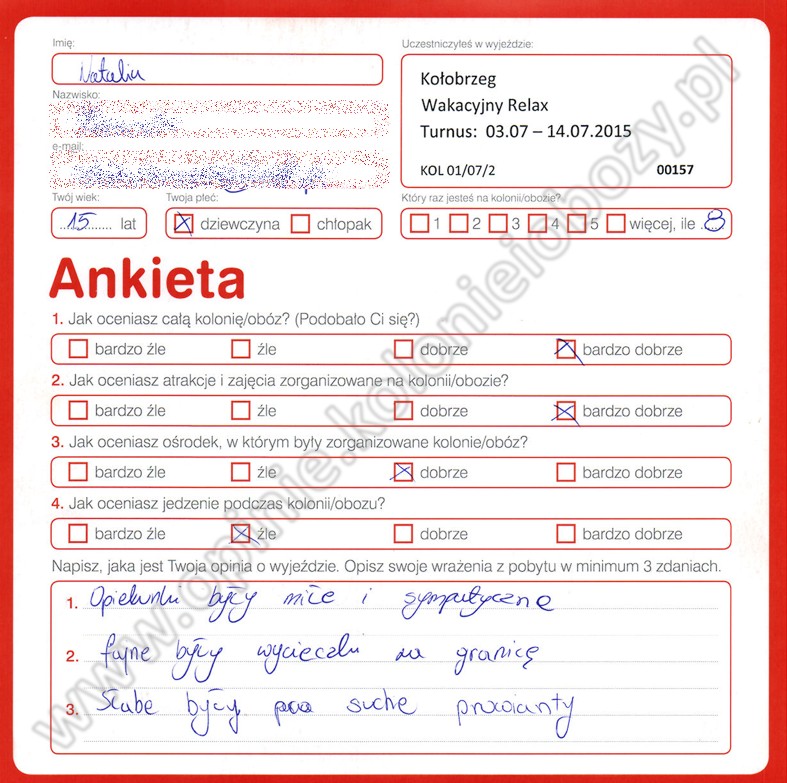 Imię:
Natalia
Uczestniczyłeś w wyjeździe:
Kołobrzeg
Wakacyjny Relax
Turnus: 03.07 – 14.07.2015
KOL 01/07/2 00157
Nazwisko:
e-mail:
Twój wiek:
15 lat
Twoja płeć:
dziewczyna chłopak
Który raz jesteś na kolonii/obozie?
1 2 3 4 5 więcej, ile 8
Ankieta
1. Jak oceniasz całą kolonię/obóz? (Podobało Ci się?)
bardzo źle źle dobrze bardzo dobrze
2. Jak oceniasz atrakcje i zajęcia zorganizowane na kolonii/obozie?
bardzo źle źle dobrze bardzo dobrze
3. Jak oceniasz ośrodek, w którym były zorganizowane kolonie/obóz?
bardzo źle źle dobrze bardzo dobrze
4. Jak oceniasz jedzenie podczas kolonii/obozu?
bardzo źle źle dobrze bardzo dobrze
Napisz, jaka jest Twoja opinia o wyjeździe. Opisz swoje wrażenia z pobytu w minimum 3 zdaniach.
1. Opiekunki były miłe i sympatyczne
2. fajne były wycieczki za granicę
3. Słabe były suche prowianty
www.opinie.kolonieiobozy.pl